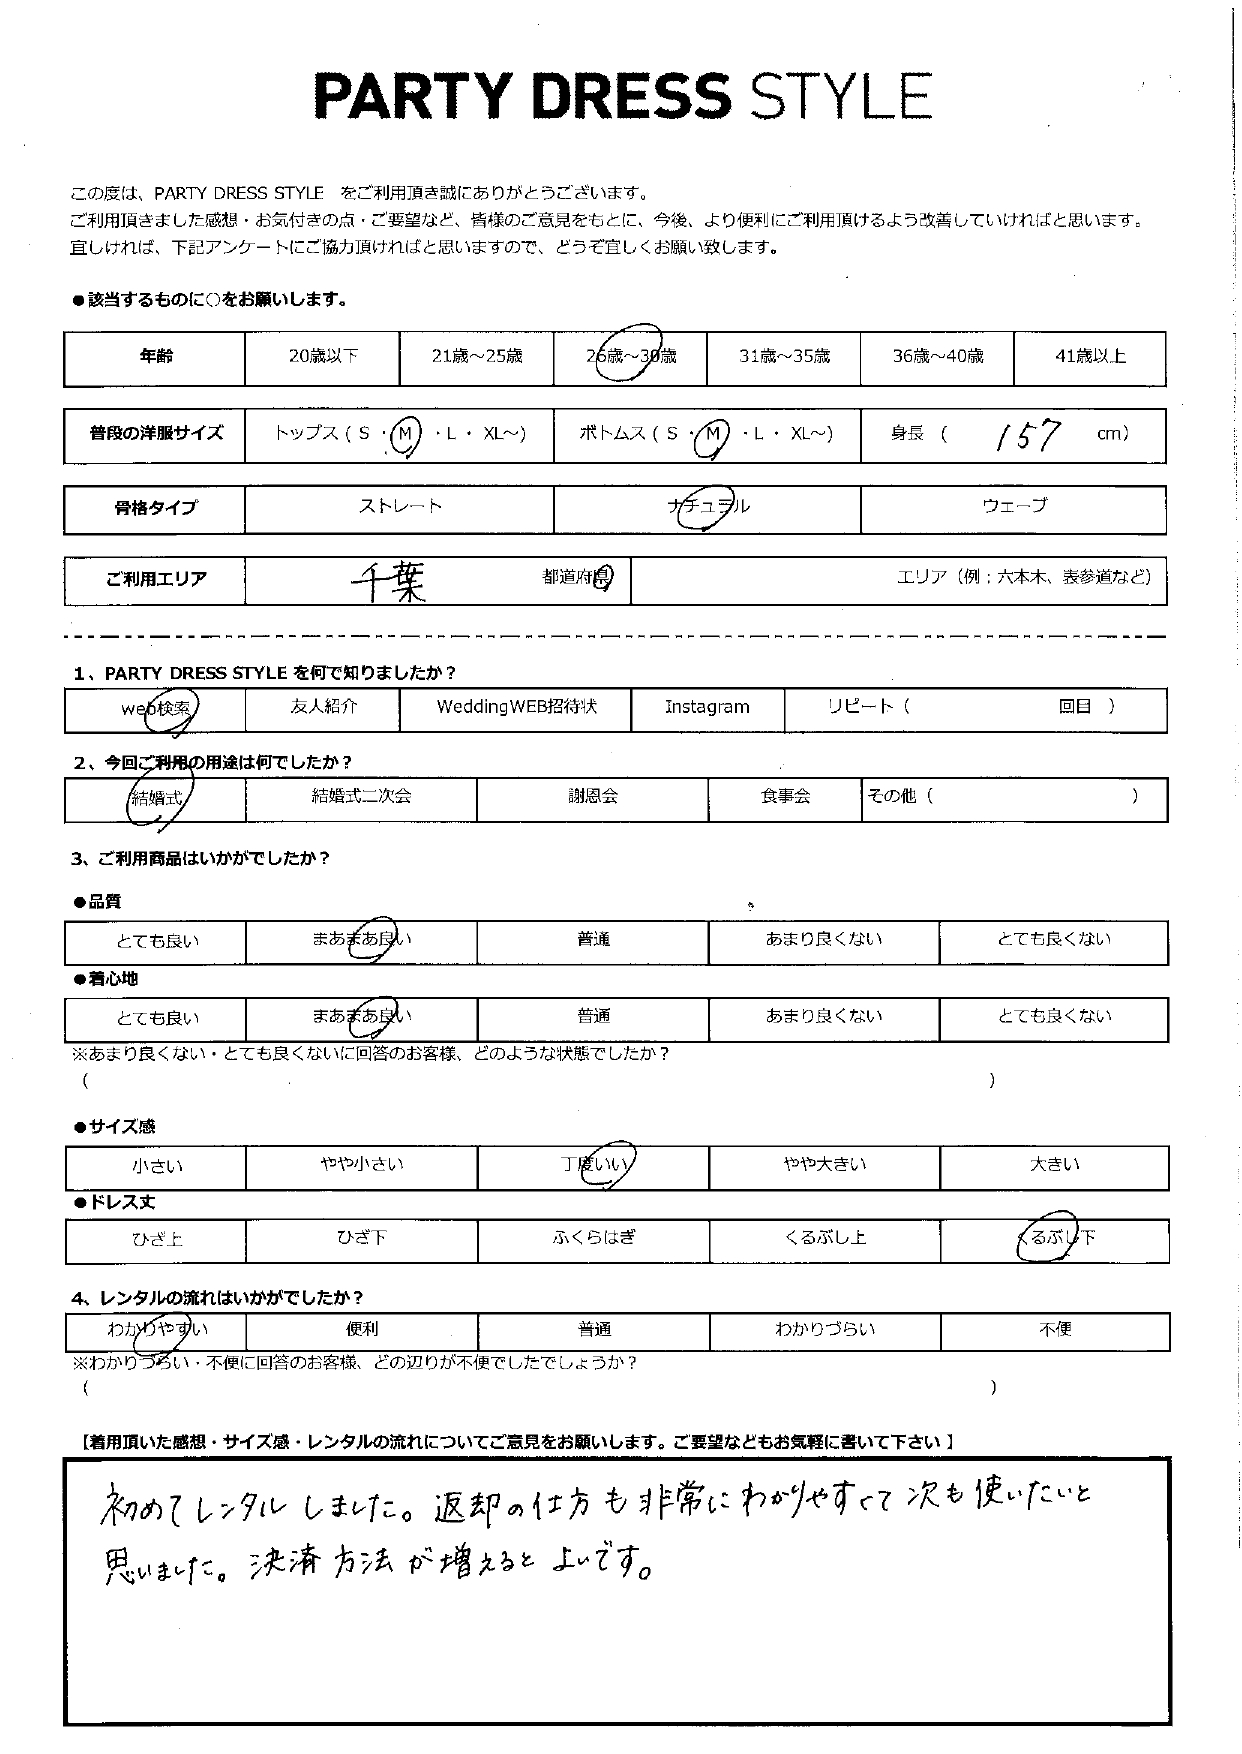 PARTY DRESS STYLE
この度は、PARTY DRESS STYLE をご利用頂き誠にありがとうございます。
ご利用頂きました感想・お気付きの点・ご要望など、皆様のご意見をもとに、今後、より便利にご利用頂けるよう改善していければと思います。
宜しければ、下記アンケートにご協力頂ければと思いますので、どうぞ宜しくお願い致します。
●該当するものに○をお願いします。
年齢 20歳以下 21歳～25歳 26歳～30歳 31歳～35歳 36歳～40歳 41歳以上
普段の洋服サイズ トップス ( S ・ M ・ L ・ XL～) ボトムス ( S ・ M ・ L ・ XL～) 身長 ( 157 cm)
骨格タイプ ストレート ナチュラル ウェーブ
ご利用エリア 千葉 都道府県 エリア（例：六本木、表参道など）
1、PARTY DRESS STYLE を何で知りましたか？
web検索 友人紹介 WeddingWEB招待状 Instagram リピート（ 回目 ）
2、今回ご利用の用途は何でしたか？
結婚式 結婚式二次会 謝恩会 食事会 その他（ ）
3、ご利用商品はいかがでしたか？
●品質
とても良い まあまあ良い 普通 あまり良くない とても良くない
●着心地
とても良い まあまあ良い 普通 あまり良くない とても良くない
※あまり良くない・とても良くないに回答のお客様、どのような状態でしたか？
( )
●サイズ感
小さい やや小さい 丁度いい やや大きい 大きい
●ドレス丈
ひざ上 ひざ下 ふくらはぎ くるぶし上 くるぶし下
4、レンタルの流れはいかがでしたか？
わかりやすい 便利 普通 わかりづらい 不便
※わかりづらい・不便に回答のお客様、どの辺りが不便でしたでしょうか？
( )
【着用頂いた感想・サイズ感・レンタルの流れについてご意見をお願いします。ご要望などもお気軽に書いて下さい 】
初めてレンタルしました。返却の仕方も非常にわかりやすくて次も使いたいと
思いました。決済方法が増えるとよいです。